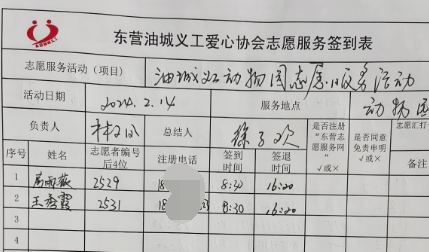 东营油城义工爱心协会志愿服务签到表
志愿服务活动（项目） 油城义工动物园志愿服务活动
活动日期 2024.2.14 服务地点 动物园
负责人 总结人 徐子欢 是否注册“东营志愿服务网”√或× 是否同意免责申明√或× 志愿汇打
序号 姓名 志愿者编号后4位 注册电话 签到时间 签退时间 备注
1 2529 18 8:30 16:20
2 王秀霞 2531 18 8:30 16:20
3
4